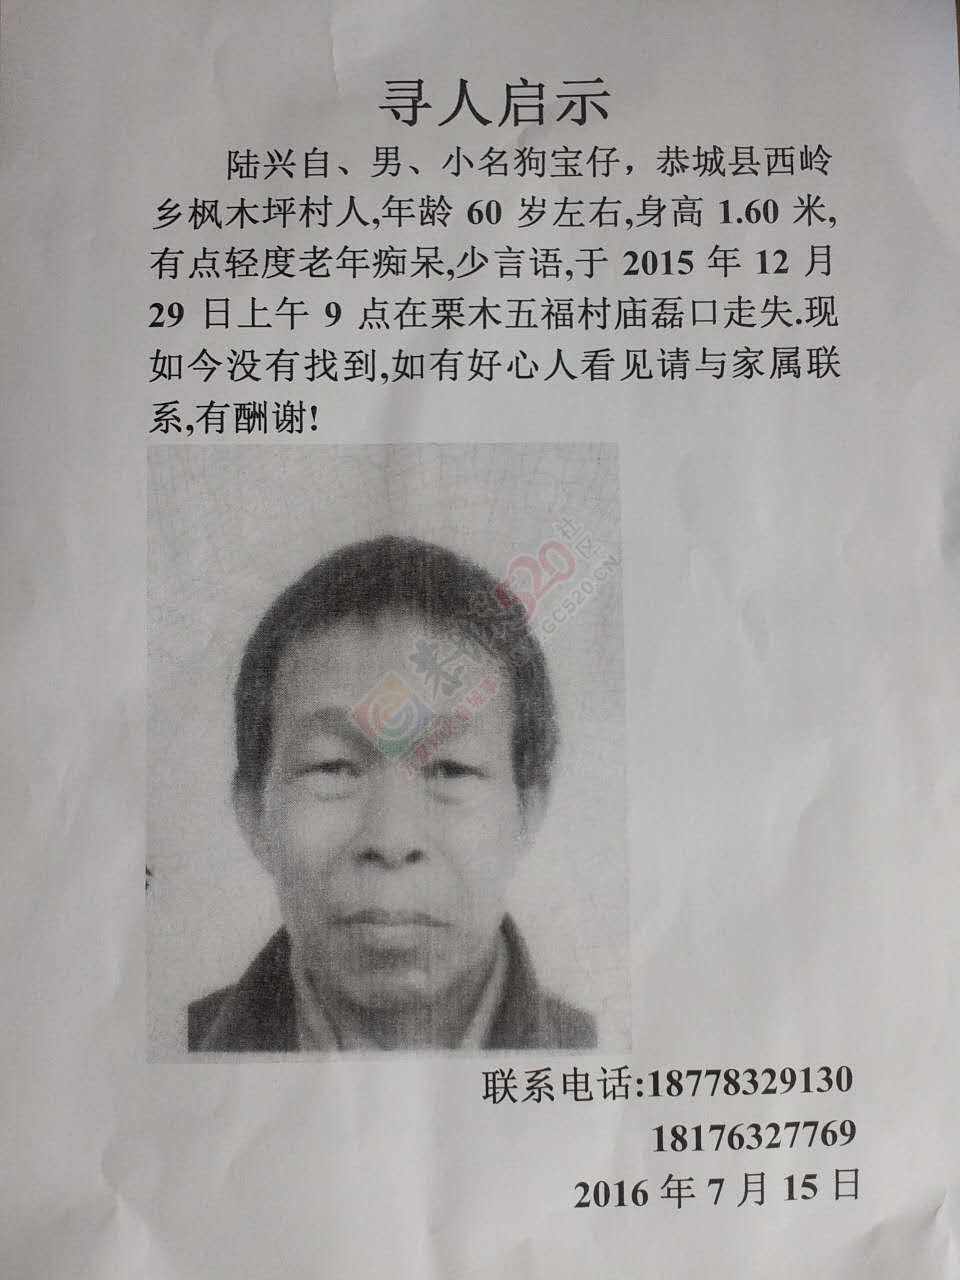 寻人启示
陆兴自、男、小名狗宝仔，恭城县西岭
乡枫木坪村人,年龄 60 岁左右,身高 1.60 米,
有点轻度老年痴呆,少言语,于 2015 年 12 月
29 日上午 9 点在栗木五福村庙磊口走失.现
如今没有找到,如有好心人看见请与家属联
系,有酬谢!
恭城520社区
GC520.CN
联系电话:18778329130
18176327769
2016 年 7 月 15 日